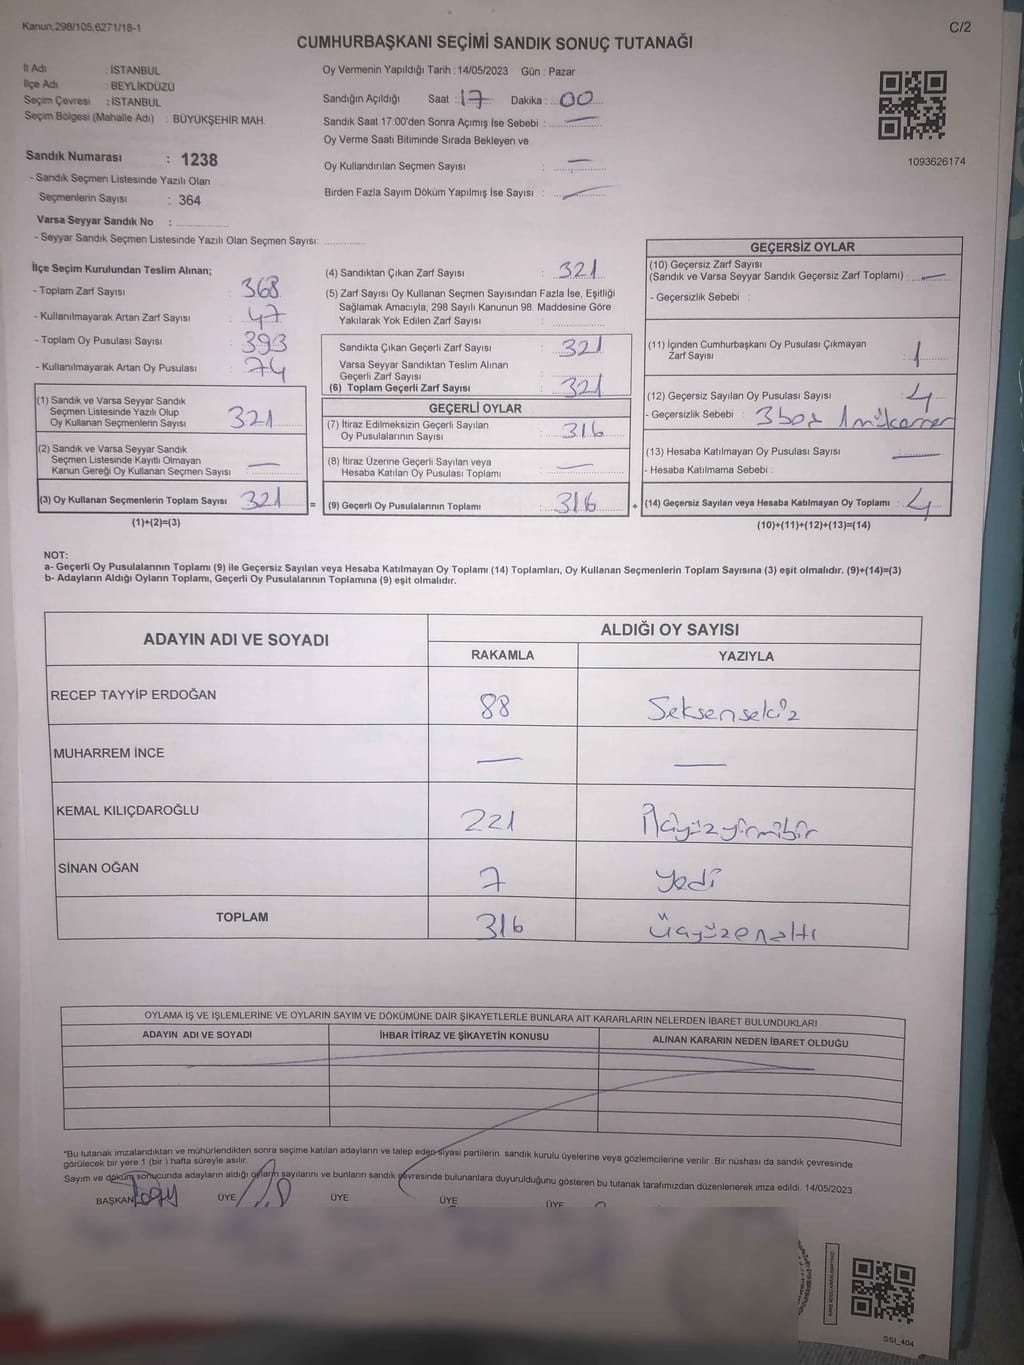 Kanun:298/105;6271/18-1
C/2
CUMHURBAŞKANI SEÇİMİ SANDIK SONUÇ TUTANAĞI
İl Adı : İSTANBUL
İlçe Adı : BEYLİKDÜZÜ
Seçim Çevresi : İSTANBUL
Seçim Bölgesi (Mahalle Adı) : BÜYÜKŞEHİR MAH.
Oy Vermenin Yapıldığı Tarih : 14/05/2023 Gün : Pazar
Sandığın Açıldığı Saat : 17 Dakika : 00
Sandık Saat 17:00'den Sonra Açımış İse Sebebi : —
Oy Verme Saati Bitiminde Sırada Bekleyen ve
Oy Kullandırılan Seçmen Sayısı : —
Birden Fazla Sayım Döküm Yapılmış İse Sayısı : —
1093626174
Sandık Numarası : 1238
- Sandık Seçmen Listesinde Yazılı Olan
Seçmenlerin Sayısı : 364
Varsa Seyyar Sandık No :
- Seyyar Sandık Seçmen Listesinde Yazılı Olan Seçmen Sayısı:
İlçe Seçim Kurulundan Teslim Alınan;
- Toplam Zarf Sayısı : 368
- Kullanılmayarak Artan Zarf Sayısı : 47
- Toplam Oy Pusulası Sayısı : 393
- Kullanılmayarak Artan Oy Pusulası : 74
(1) Sandık ve Varsa Seyyar Sandık
Seçmen Listesinde Yazılı Olup
Oy Kullanan Seçmenlerin Sayısı : 321
(2) Sandık ve Varsa Seyyar Sandık
Seçmen Listesinde Kayıtlı Olmayan
Kanun Gereği Oy Kullanan Seçmen Sayısı : —
(3) Oy Kullanan Seçmenlerin Toplam Sayısı : 321
(1)+(2)=(3)
(4) Sandıktan Çıkan Zarf Sayısı : 321
(5) Zarf Sayısı Oy Kullanan Seçmen Sayısından Fazla İse, Eşitliği
Sağlamak Amacıyla, 298 Sayılı Kanunun 98. Maddesine Göre
Yakılarak Yok Edilen Zarf Sayısı :
Sandıkta Çıkan Geçerli Zarf Sayısı : 321
Varsa Seyyar Sandıktan Teslim Alınan
Geçerli Zarf Sayısı :
(6) Toplam Geçerli Zarf Sayısı : 321
GEÇERLİ OYLAR
(7) İtiraz Edilmeksizin Geçerli Sayılan
Oy Pusulalarının Sayısı : 316
(8) İtiraz Üzerine Geçerli Sayılan veya
Hesaba Katılan Oy Pusulası Toplamı : —
= (9) Geçerli Oy Pusulalarının Toplamı : 316
GEÇERSİZ OYLAR
(10) Geçersiz Zarf Sayısı
(Sandık ve Varsa Seyyar Sandık Geçersiz Zarf Toplamı) : —
- Geçersizlik Sebebi :
(11) İçinden Cumhurbaşkanı Oy Pusulası Çıkmayan
Zarf Sayısı : 1
(12) Geçersiz Sayılan Oy Pusulası Sayısı : 4
- Geçersizlik Sebebi : 3 boş 1 mükerrer
(13) Hesaba Katılmayan Oy Pusulası Sayısı : —
- Hesaba Katılmama Sebebi :
+ (14) Geçersiz Sayılan veya Hesaba Katılmayan Oy Toplamı : 4
(10)+(11)+(12)+(13)=(14)
NOT:
a- Geçerli Oy Pusulalarının Toplamı (9) ile Geçersiz Sayılan veya Hesaba Katılmayan Oy Toplamı (14) Toplamları, Oy Kullanan Seçmenlerin Toplam Sayısına (3) eşit olmalıdır. (9)+(14)=(3)
b- Adayların Aldığı Oyların Toplamı, Geçerli Oy Pusulalarının Toplamına (9) eşit olmalıdır.
ADAYIN ADI VE SOYADI ALDIĞI OY SAYISI
RAKAMLA YAZIYLA
RECEP TAYYİP ERDOĞAN 88 Seksensekiz
MUHARREM İNCE — —
KEMAL KILIÇDAROĞLU 221 İkiyüzyirmibir
SİNAN OĞAN 7 Yedi
TOPLAM 316 Üçyüzonaltı
OYLAMA İŞ VE İŞLEMLERİNE VE OYLARIN SAYIM VE DÖKÜMÜNE DAİR ŞİKAYETLERLE BUNLARA AİT KARARLARIN NELERDEN İBARET BULUNDUKLARI
ADAYIN ADI VE SOYADI İHBAR İTİRAZ VE ŞİKAYETİN KONUSU ALINAN KARARIN NEDEN İBARET OLDUĞU
*Bu tutanak imzalandıktan ve mühürlendikten sonra seçime katılan adayların ve talep eden siyasi partilerin sandık kurulu üyelerine veya gözlemcilerine verilir .Bir nüshası da sandık çevresinde
görülecek bir yere 1 (bir ) hafta süreyle asılır.
Sayım ve döküm sonucunda adayların aldığı oyların sayılarını ve bunların sandık çevresinde bulunanlara duyurulduğunu gösteren bu tutanak tarafımızdan düzenlenerek imza edildi. 14/05/2023
BAŞKAN ÜYE ÜYE ÜYE ÜYE
SSI_404